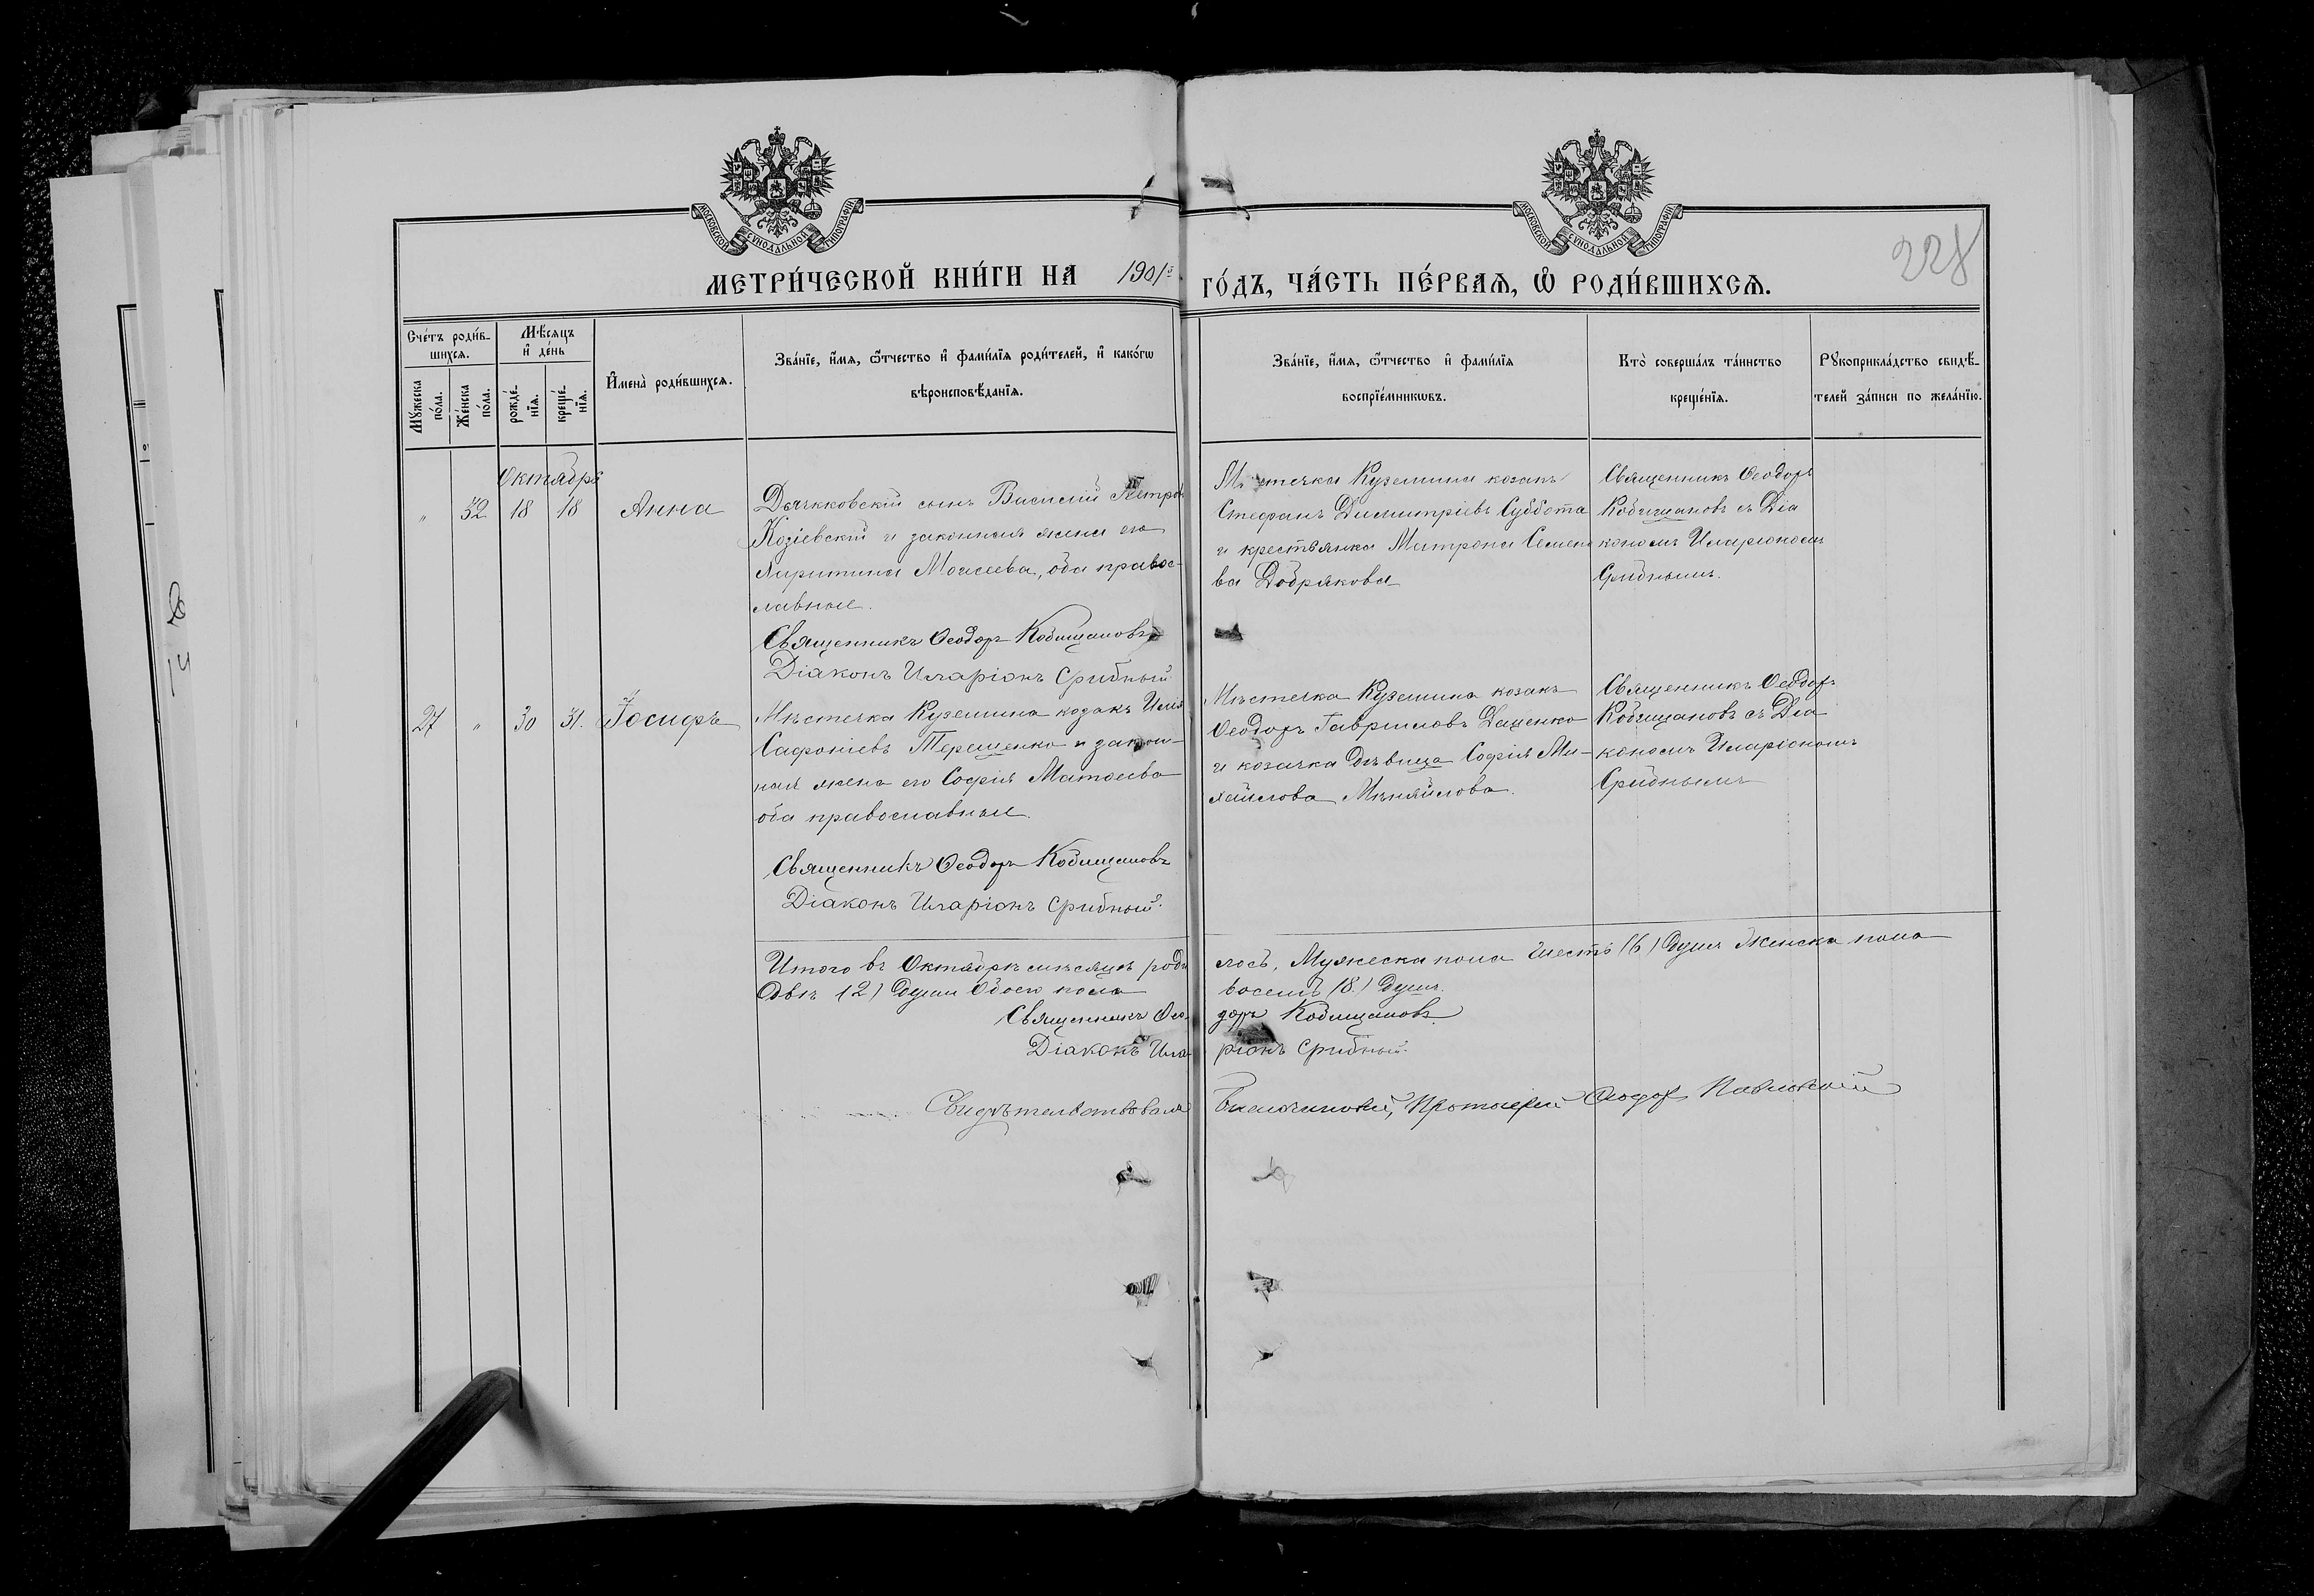 МОСКОВСКОЙ СѴНОДАЛЬНОЙ ТИПОГРАФІИ
МОСКОВСКОЙ СѴНОДАЛЬНОЙ ТИПОГРАФІИ
228
МЕТРИ́ЧЕСКОЙ КНИ́ГИ НА 1901й ГО́ДЪ, ЧА́СТЬ ПЕ́РВАѦ, Ѡ҆ РОДИ́ВШИХСѦ.
Сче́тъ роди́в-
шихсѧ.
Мꙋ́жеска
по́ла.
Же́нска
по́ла.
Мѣ́сѧцъ
и҆ де́нь
рожде́-
нїѧ.
креще́-
нїѧ.
И҆мена̀ роди́вшихсѧ.
Зва́нїе, и҆́мѧ, ѻ҆́тчество и҆ фами́лїѧ роди́телей, и҆ како́гѡ
вѣроисповѣ́данїѧ.
Зва́нїе, и҆́мѧ, ѻ҆́тчество и҆ фами́лїѧ
воспрїе́мникѡвъ.
Кто̀ соверша́лъ та́инство
креще́нїѧ.
Рꙋкоприкла́дство свидѣ́-
телей за́писи по жела́нїю.
Октябрь
" 32 18 18 Анна
Дьячковскій сынъ Василій Петров
Козіевскій и законная жена его
Харитина Моисеева, оба правос-
лавные.
Священникъ Ѳеодоръ Кобищановъ
Діаконъ Иларіонъ Срибный
Мѣстечка Куземина козакъ
Стефанъ Димитріевъ Суббота
и крестьянка Матрона Семено
ва Добрякова
Священникъ Ѳеодоръ
Кобищановъ съ Діа
кономъ Иларіономъ
Срибнымъ.
27 " 30 31. Іосифъ
Мѣстечка Куземина козакъ Илія
Сафоніевъ Терещенко и закон-
ная жена его Софія Матѳеева
оба православные.
Священникъ Ѳеодоръ Кобищановъ
Діаконъ Иларіонъ Срибный.
Мѣстечка Куземина козакъ
Ѳеодоръ Гавриловъ Даценко
и козачка дѣвица Софія Ми-
хайлова Михайлова.
Священникъ Ѳеодоръ
Кобищановъ съ Діа
кономъ Иларіономъ
Срибнымъ
Итого въ Октябрѣ мѣсяцѣ роди лось, Мужеска пола шесть (6) душъ Женска пола
двѣ (2) души Обоего пола восемь (8.) душъ.
Священникъ Ѳео доръ Кобищановъ.
Діаконъ Ила ріонъ Срибный.
Свидѣтельствовалъ Благочинный, Протоіерей Ѳеодоръ Павловскій